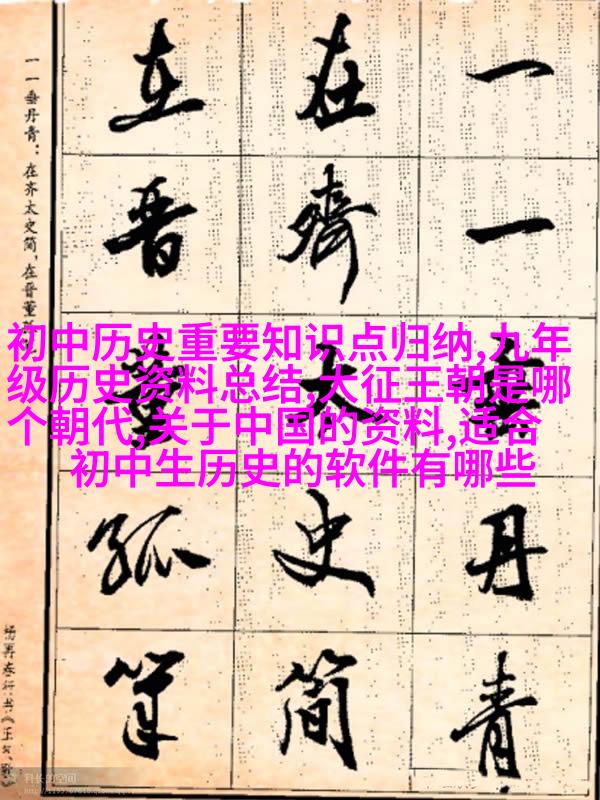 一一垂丹青
在齊太史简
在晋董狐筆
一一垂丹青:在齐太史简,在晋董
杨再春行书《正气歌
初中历史重要知识点归纳,九年
级历史资料总结,大征王朝是哪
个朝代,关于中国的资料,适合
初中生历史的软件有哪些
科长的空间